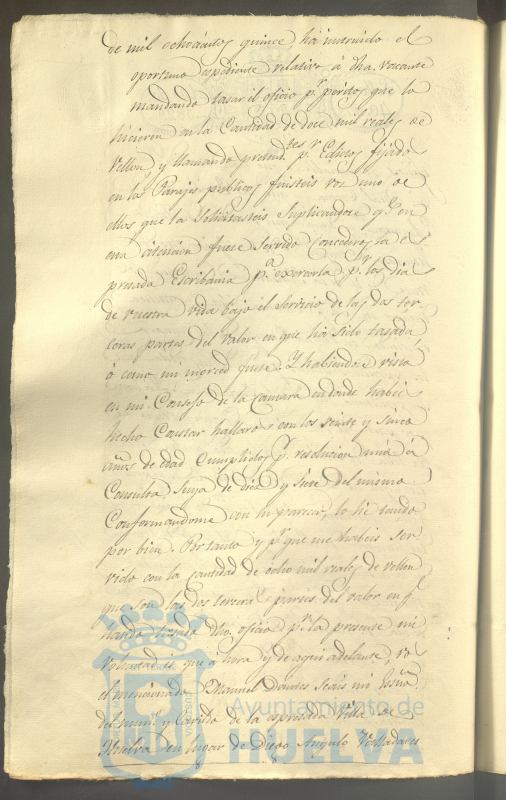 de mil ochocientos quince, ha instruido el
oportuno expediente relativo á dha. vacante
mandando tasar el oficio pr. peritos que lo
hicieron en la Cantidad de doce mil reales de
Vellon, y llamando pretendtes. pr. Edictos fijados
en los Parajes publicos fuisteis vos uno de
ellos que la Solicitasteis Suplicandome qe. en
su atencion fuese servido Concederos la es
presada Escribania pa. exercerla pr. los dias
de vuestra vida bajo el servicio de las dos ter
ceras partes del valor en que ha sido tasada,
ó como mi merced fuese. Y habiendose visto
en mi Consejo de la Camara en donde habeis
hecho Constar hallaros con los veinte y cinco
años de edad Cumplidos, pr. resolucion mia á
Consulta suya de diez y siete del mismo
Conformandome con su parecer, lo he tenido
por bien. Por tanto y pr. que me habeis ser
vido con la cantidad de ocho mil reales de vellon
que son las dos terceras partes del valor en qe.
ha sido tasado dho. oficio pr. la presente mi
voluntad es que ahora y de aqui adelante, vos
el mencionado Manuel seais mi Essno.
del numo. y Cavildo de la espresada Villa de
Huelva en lugar de Diego Angulo Valladares
Ayuntamiento de
HUELVA